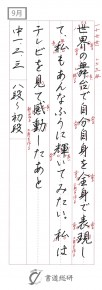 9月
世界の舞台で自分自身を全身で表現し
て、私もあんなふうに輝いてみたい、私は
テレビを見て感動したあと
中二・三 八段〜初段
書道総研